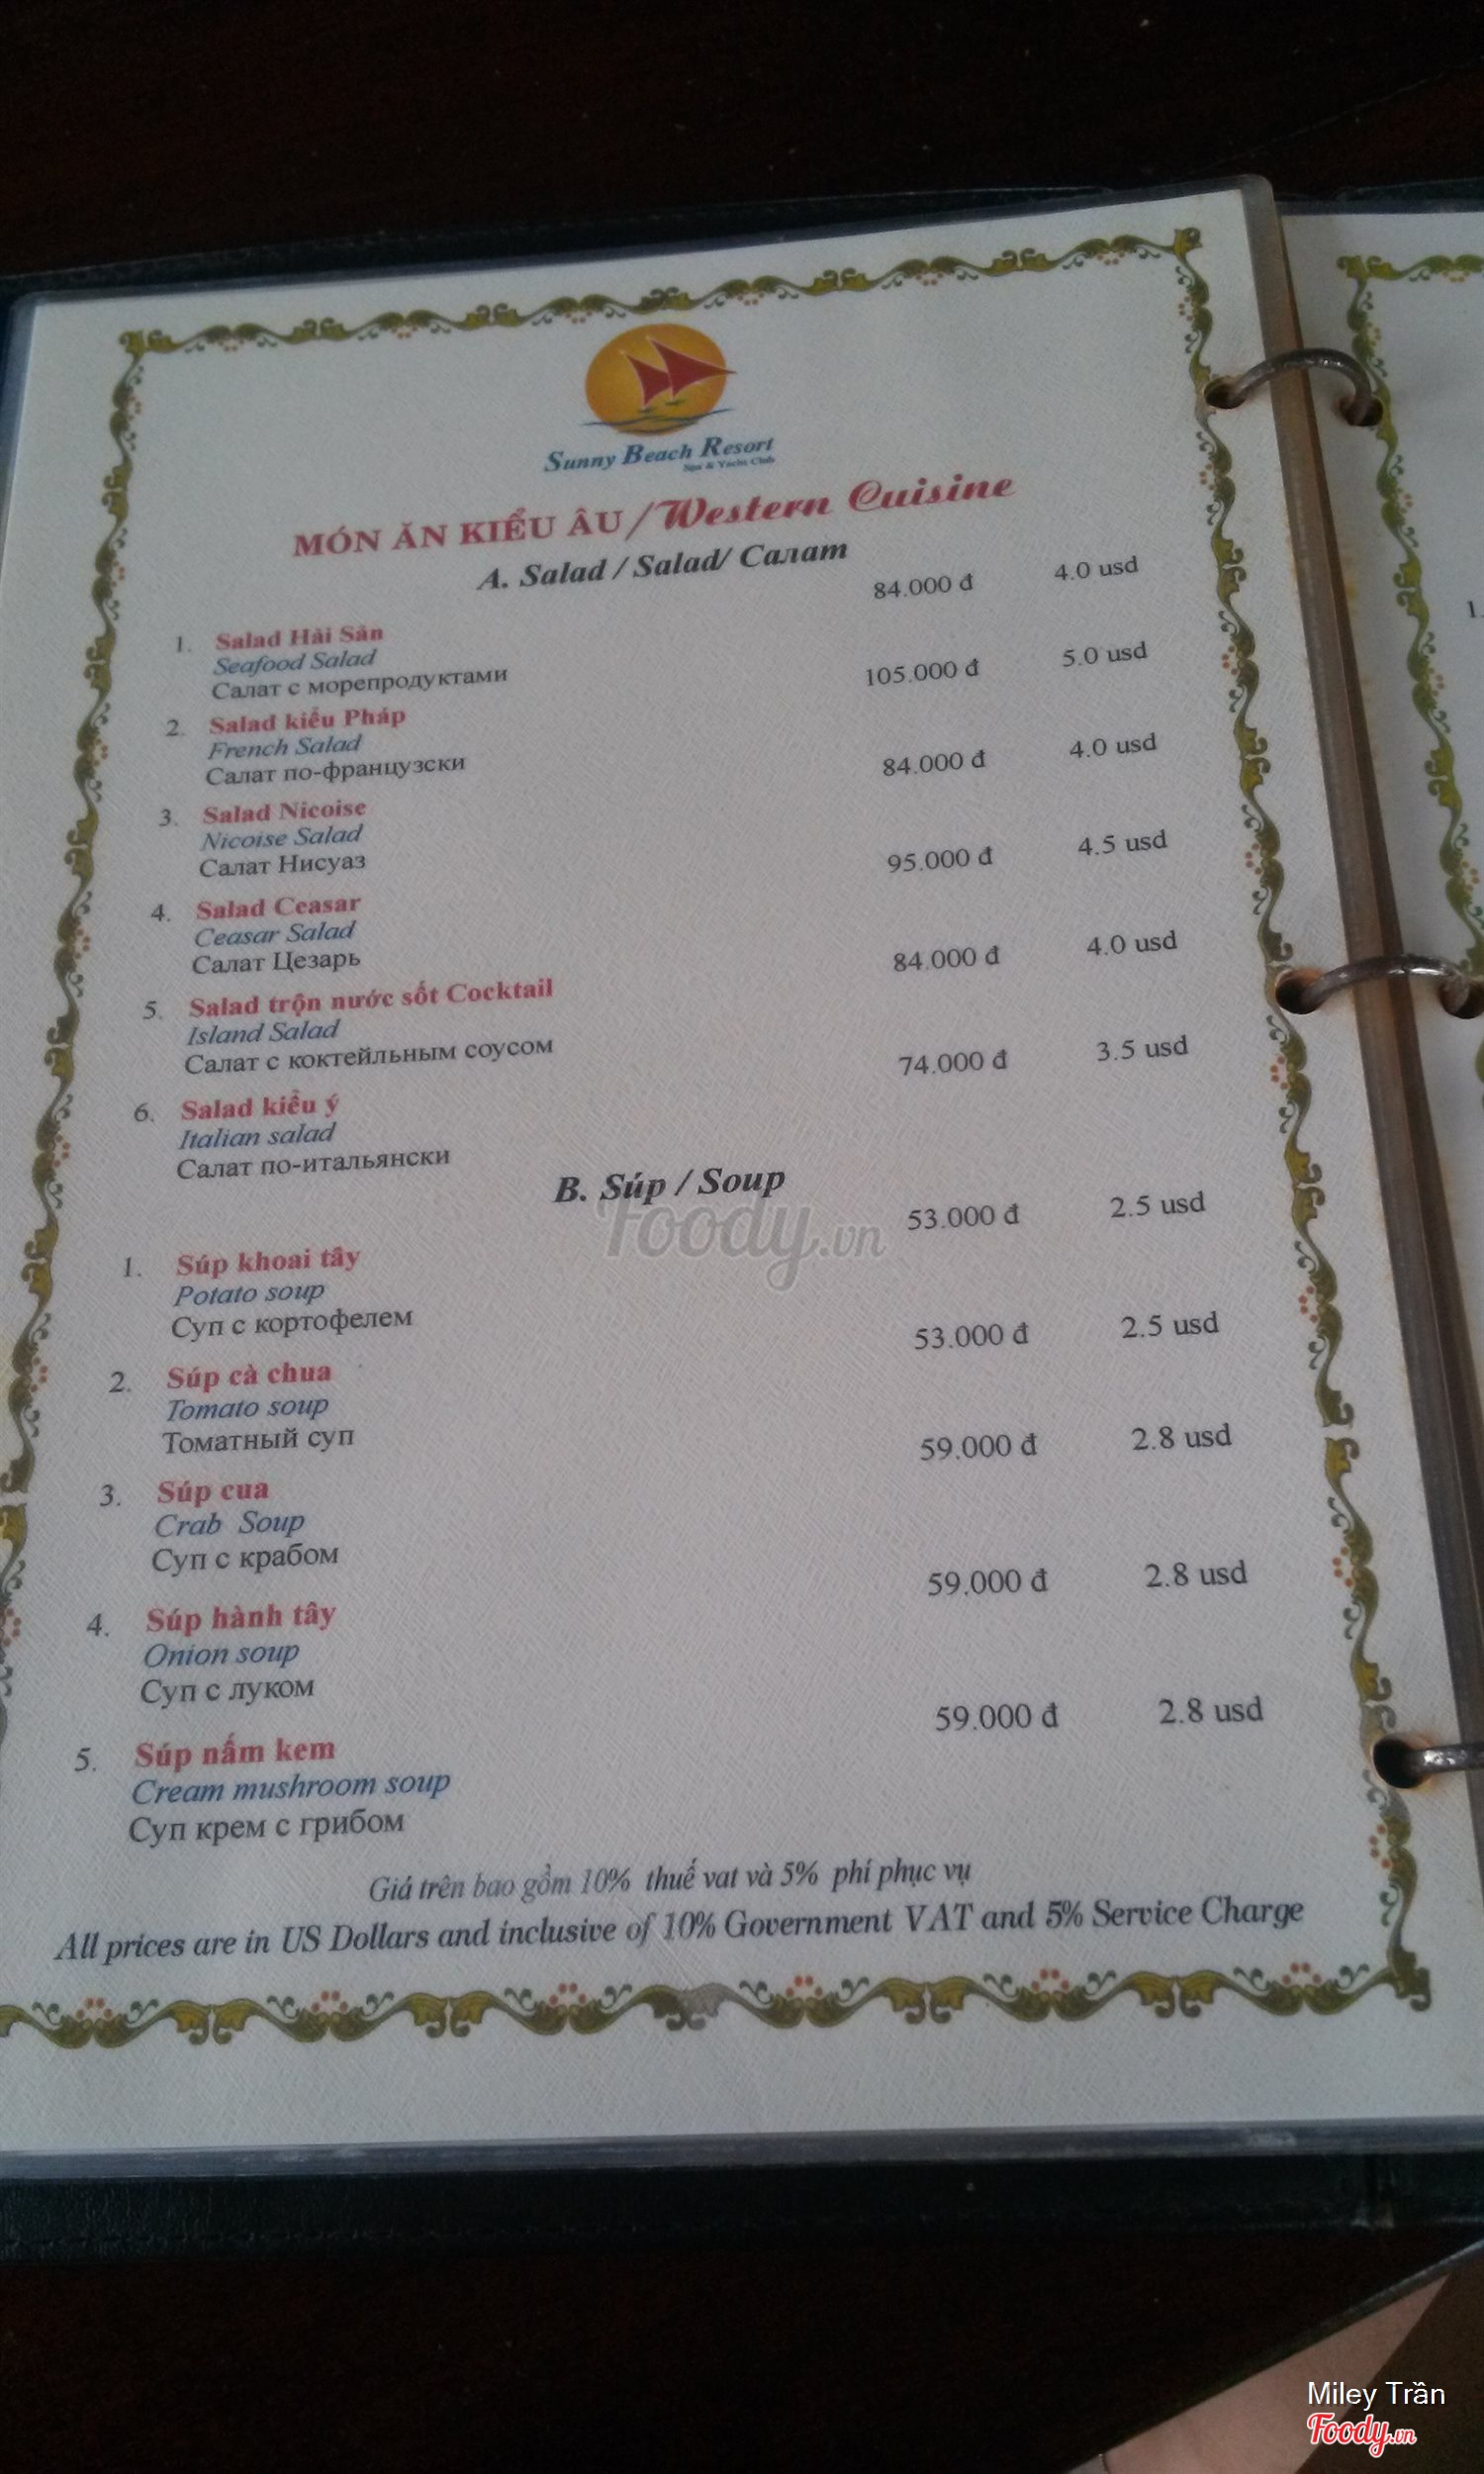 Sunny Beach Resort
Spa & Yacht Club
MÓN ĂN KIỂU ÂU / Western Cuisine
A. Salad / Salad/ Салат
84.000 đ 4.0 usd
1. Salad Hải Sản
Seafood Salad
Салат с морепродуктами
105.000 đ 5.0 usd
2. Salad kiểu Pháp
French Salad
Салат по-французски
84.000 đ 4.0 usd
3. Salad Nicoise
Nicoise Salad
Салат Нисуаз
95.000 đ 4.5 usd
4. Salad Ceasar
Ceasar Salad
Салат Цезарь
84.000 đ 4.0 usd
5. Salad trộn nước sốt Cocktail
Island Salad
Салат с коктейльным соусом
74.000 đ 3.5 usd
6. Salad kiểu ý
Italian salad
Салат по-итальянски
B. Súp / Soup
53.000 đ 2.5 usd
1. Súp khoai tây
Potato soup
Суп с кортофелем
53.000 đ 2.5 usd
2. Súp cà chua
Tomato soup
Томатный суп
59.000 đ 2.8 usd
3. Súp cua
Crab Soup
Суп с крабом
59.000 đ 2.8 usd
4. Súp hành tây
Onion soup
Суп с луком
59.000 đ 2.8 usd
5. Súp nấm kem
Cream mushroom soup
Суп крем с грибом
Giá trên bao gồm 10% thuế vat và 5% phí phục vụ
All prices are in US Dollars and inclusive of 10% Government VAT and 5% Service Charge
1.
Foody.vn
Miley Trần
Foody.vn